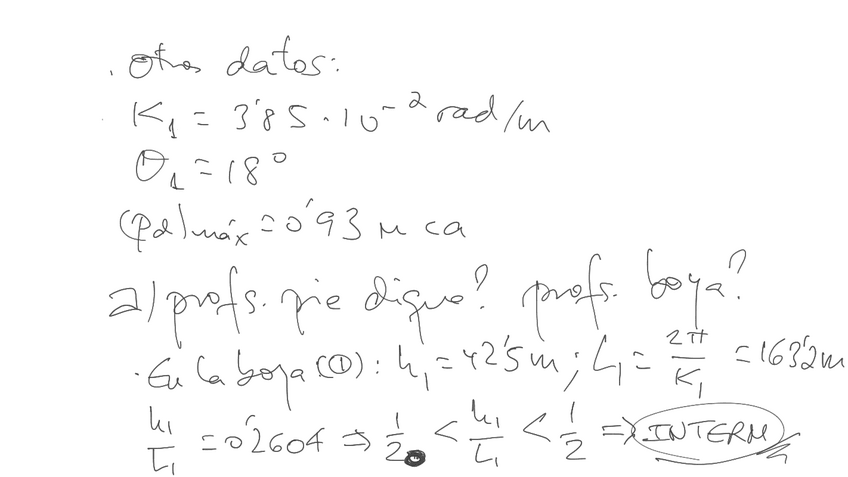 . Otros datos:
K₁ = 3'85 · 10⁻² rad/m
θ₁ = 18°
(Pd)máx = 0'93 m ca
a/ profs. pie dique? profs. boya?
· En la boya (①): h₁ = 42'5 m ; L₁ = 2π/K₁ = 163'2 m
h₁/L₁ = 0'2604 ⇒ 1/20 < h₁/L₁ < 1/2 ⇒ INTERM